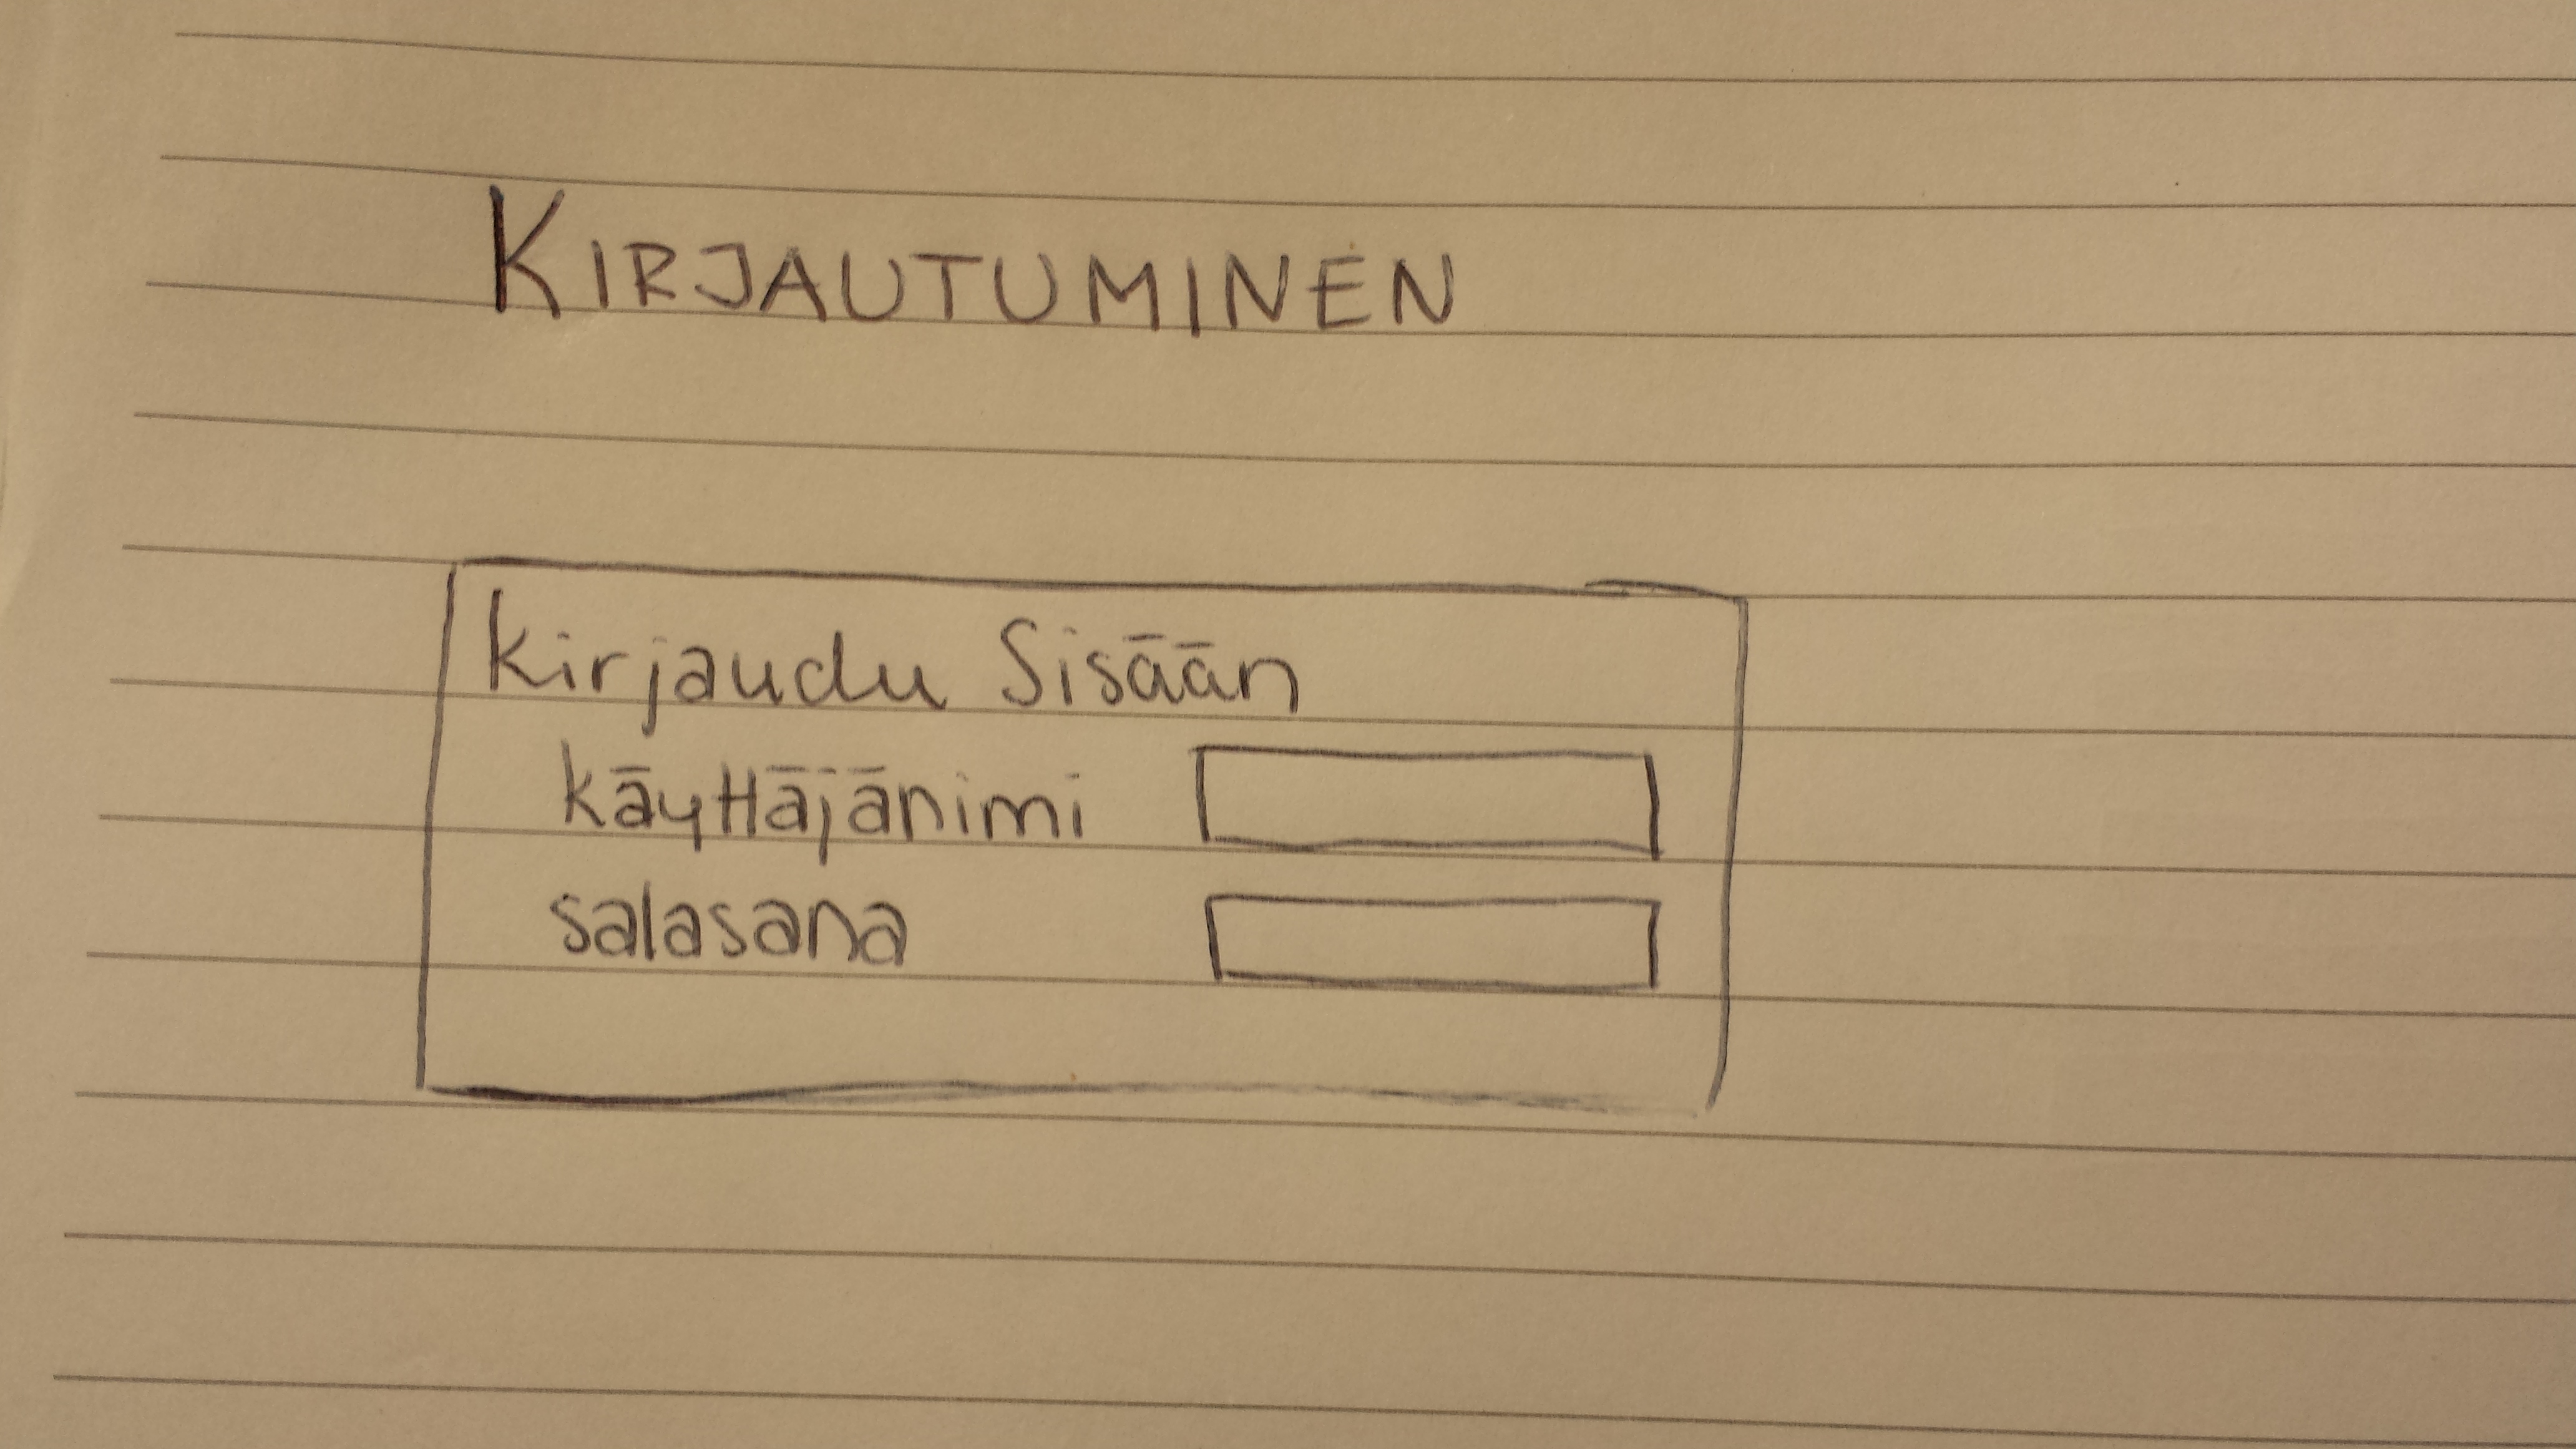 KIRJAUTUMINEN
Kirjaudu Sisään
käyttäjänimi
salasana